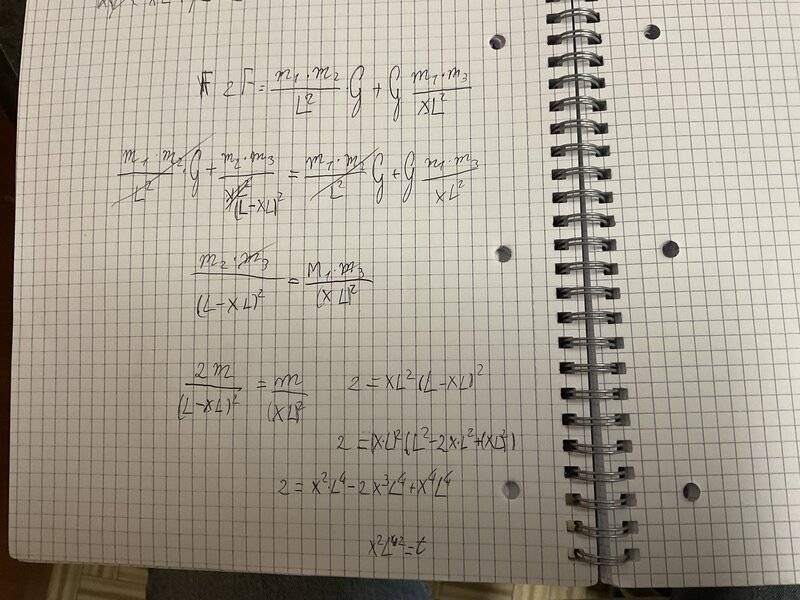 2F = \frac{m_1 \cdot m_2}{L^2} G + G \frac{m_1 \cdot m_3}{XL^2}
\frac{m_1 \cdot m_2}{L^2} \cdot G + \frac{m_2 \cdot m_3}{(L-XL)^2} = \frac{m_1 \cdot m_2}{L^2} G + G \frac{m_1 \cdot m_3}{XL^2}
\frac{m_2 \cdot m_3}{(L-XL)^2} = \frac{M_1 \cdot m_3}{(XL)^2}
\frac{2m}{(L-XL)^2} = \frac{m}{(XL)^2} 2 = XL^2 (L-XL)^2
2 = (X \cdot L)^2 (L^2 - 2X \cdot L^2 + (XL)^2)
2 = X^2 \cdot L^4 - 2X^3L^4 + X^4L^4
= t